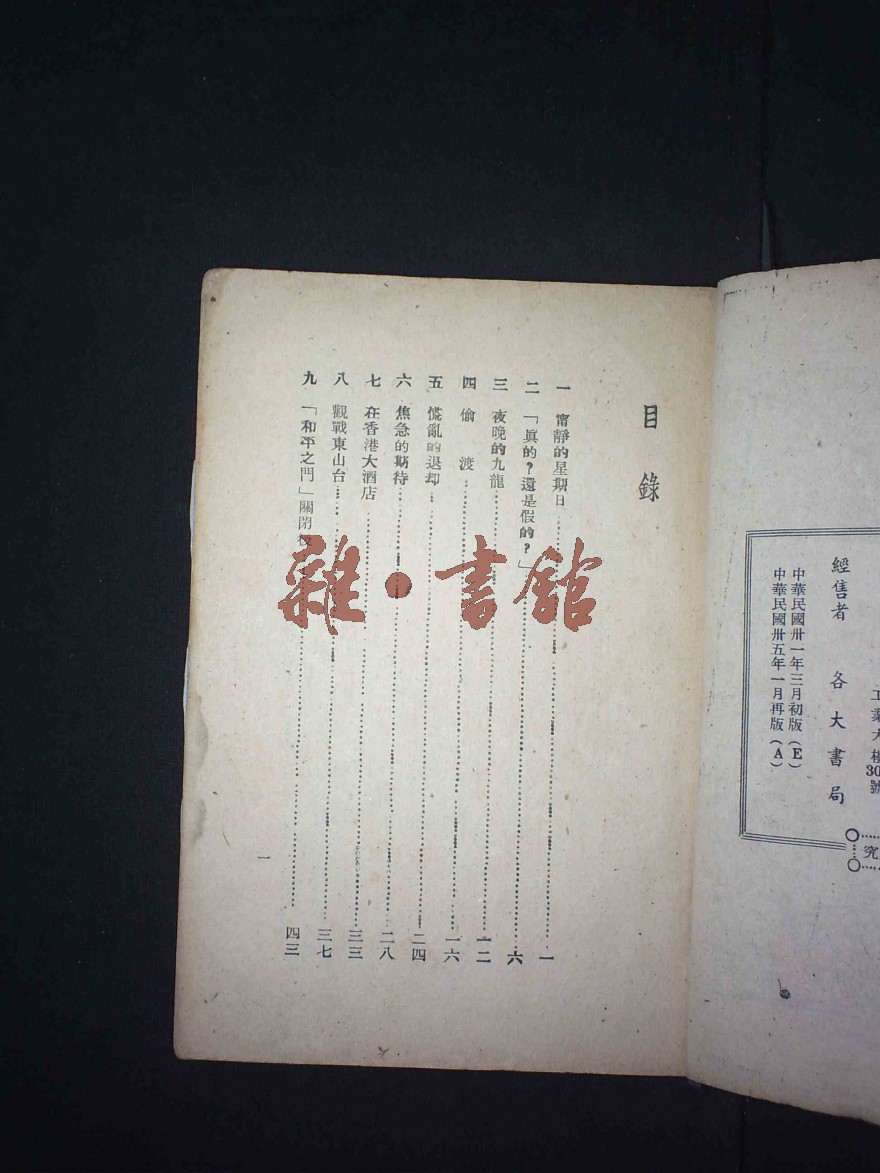 經售者 各大書局
中華民國卅一年三月初版(E)
中華民國卅五年一月再版(A)
究
目錄
一 甯靜的星期日 一
二 「眞的?還是假的?」 六
三 夜晚的九龍 一二
四 偷渡 一六
五 慌亂的退却 二四
六 焦急的期待 二八
七 在香港大酒店 三三
八 觀戰東山台 三七
九 「和平之門」關閉 四三
一
雜·書館